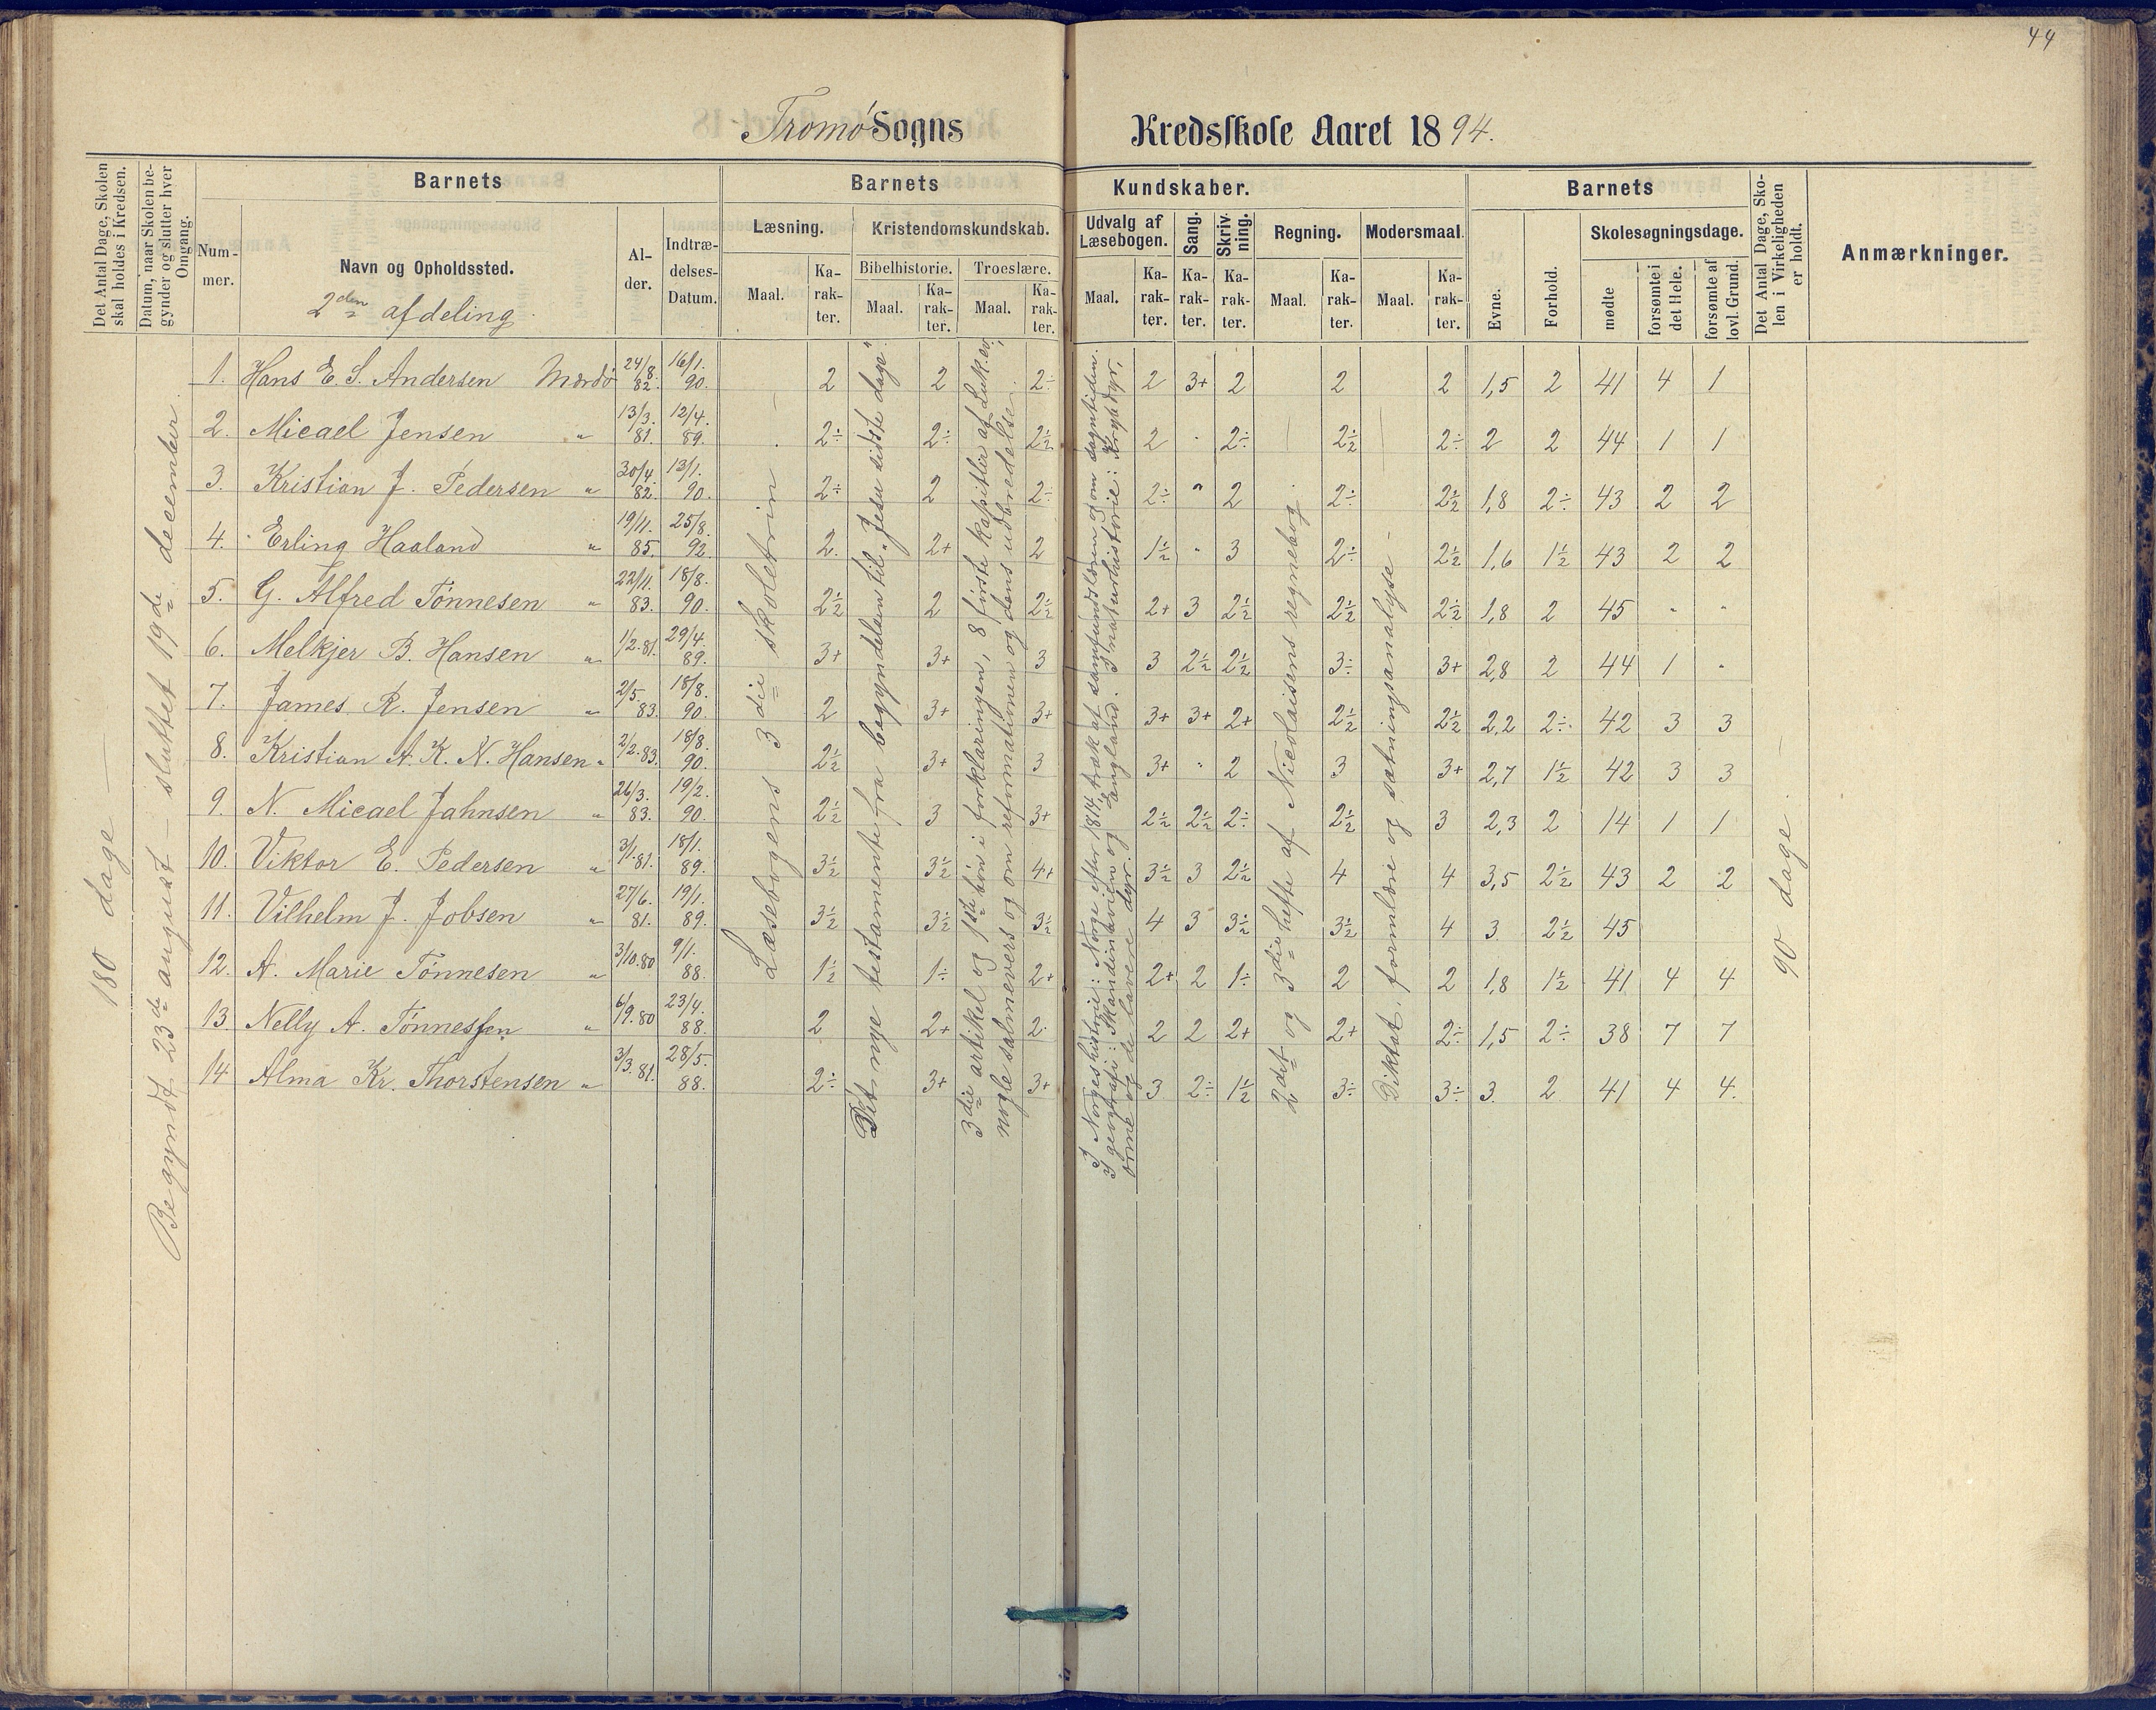 44
Tromø Sogns Kredsskole Aaret 1894.
Det Antal Dage, Skolen skal holdes i Kredsen.
Datum, naar Skolen begynder og slutter hver Omgang.
Barnets
Nummer.
Navn og Opholdssted.
2den afdeling.
Alder.
Indtrædelses-Datum.
Barnets Kundskaber.
Læsning.
Maal.
Karakter.
Kristendomskundskab.
Bibelhistorie.
Maal.
Karakter.
Troeslære.
Maal.
Karakter.
Udvalg af Læsebogen.
Maal.
Karakter.
Sang.
Karakter.
Skrivning.
Karakter.
Regning.
Maal.
Karakter.
Modersmaal.
Maal.
Karakter.
Barnets
Evne.
Forhold.
Skolesøgningsdage.
mødte
forsømte i det Hele.
forsømte af lovl. Grund.
Det Antal Dage, Skolen i Virkeligheden er holdt.
Anmærkninger.
180 dage
Begyndt 23de august – sluttet 19de december.
1. Hans E. S. Andersen Mærdø 24/8. 82. 16/1. 90. 2 2 2÷ 2 3+ 2 2 2 1,5 2 41 4 1
2. Micael Jensen " 13/3. 81. 12/4. 89. 2÷ 2÷ 2½ 2 " 2÷ 2½ 2÷ 2 2 44 1 1
3. Kristian J. Pedersen " 30/4. 82. 13/1. 90. 2÷ 2 2÷ 2÷ " 2 2÷ 2½ 1,8 2÷ 43 2 2
4. Erling Haaland " 19/11. 85. 25/8. 92. 2. 2+ 2 1½ " 3 2÷ 2½ 1,6 1½ 43 2 2
5. G. Alfred Tönnesen " 22/11. 83. 18/8. 90. 2½ 2 2½ 2+ 3 2½ 2½ 2½ 1,8 2 45 " "
6. Melkjer B. Hansen " 1/2.81. 29/4. 89. 3+ 3+ 3 3 2½ 2½ 3÷ 3+ 2,8 2 44 1 "
7. James R. Jensen " 2/5. 83. 18/8. 90. 2 3+ 3+ 3+ 3+ 2+ 2½ 2½ 2,2 2÷ 42 3 3
8. Kristian A. K. N. Hansen " 2/2.83. 18/8. 90. 2½ 3+ 3 3+ " 2 3 3+ 2,7 1½ 42 3 3
9. N. Micael Jahnsen " 26/3. 83. 19/2. 90. 2½ 3 3+ 2½ 2½ 2÷ 2½ 3 2,3 2 14 1 1
10. Viktor E. Pedersen " 3/1.81. 18/1. 89. 3½ 3½ 4+ 3½ 3 2½ 4 4 3,5 2½ 43 2 2
11. Vilhelm J. Jobsen " 27/6. 81. 19/1. 89. 3½ 3½ 3½ 4 3 3½ 3½ 4 3 2½ 45
12. A. Marie Tönnesen " 3/10.80 9/1. 88. 1½ 1÷ 2+ 2+ 2 1÷ 2 2 1,8 1½ 41 4 4
13. Nelly A. Tönnessen " 6/9.80 23/4. 88. 2 2+ 2. 2 2 2+ 2+ 2÷ 1,5 2÷ 38 7 7
14. Alma Kr. Thorstensen " 3/3.81. 28/5. 88. 2÷ 3+ 3+ 3 2÷ 1½ 3÷ 3÷ 3. 2 41 4 4.
Læsebogens 3die skoletrin –
Det nye testamente fra begyndelsen til „Jesu sidste dage".
3die artikel og 1ste bön i forklaringen, 8 förste kapitler af Luk. ev.,
nogle salmevers og om reformationen og dens udbredelse.
I Norgeshistorie: Norge efter 1814, træk af samfundslæren og om sagntiden.
I geografi: Skandinavien og England. I naturhistorie: Krybdyr,
orme og de lavere dyr.
2det og 3die hefte af Nicolaisens regnebog.
Diktat, formlære og sætningsanalyse –
90 dage –